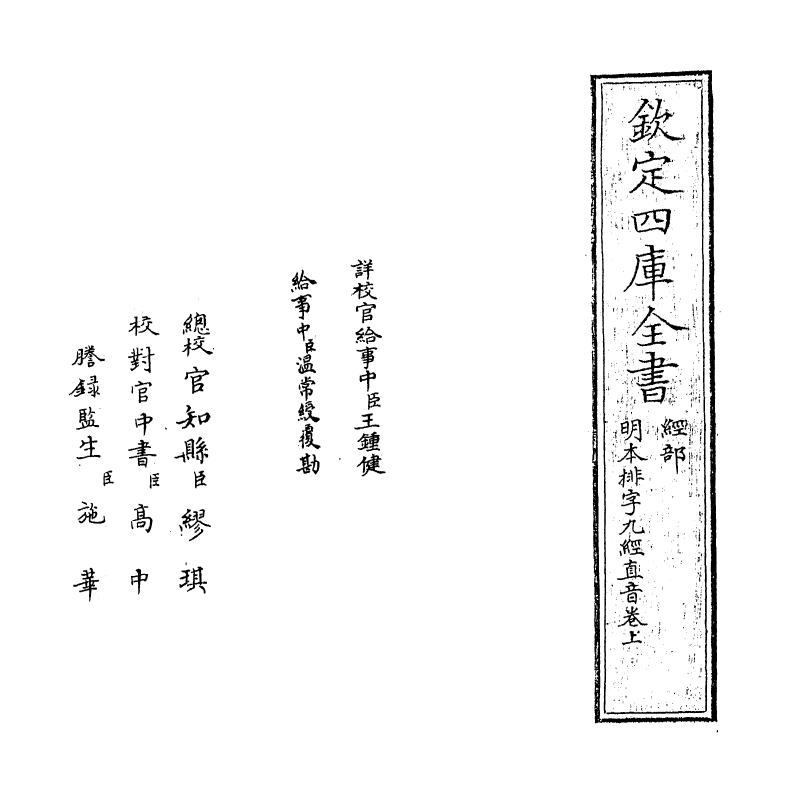 欽定四庫全書
經部
明本排字九經直音卷上
詳校官給事中臣王鍾健
給事中臣温常綬覆勘
總校官知縣臣繆琪
校對官中書臣高中
謄録監生臣施華